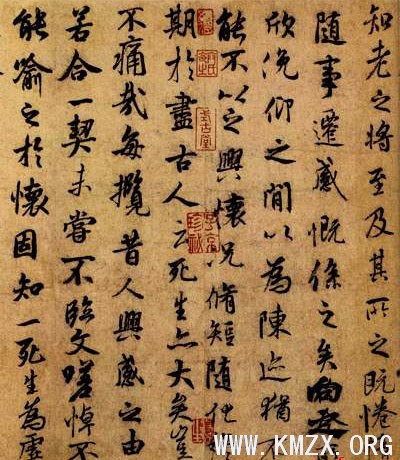 知老之將至及其所之既惓
隨事遷感慨係之矣向之
欣俛仰之閒以為陳迹猶不
能不以之興懷況脩短隨化
期於盡古人云死生亦大矣豈
不痛哉每攬昔人興感之由
若合一契未嘗不臨文嗟悼不
能喻之於懷固知一死生為虛
WWW.KMZX.ORG